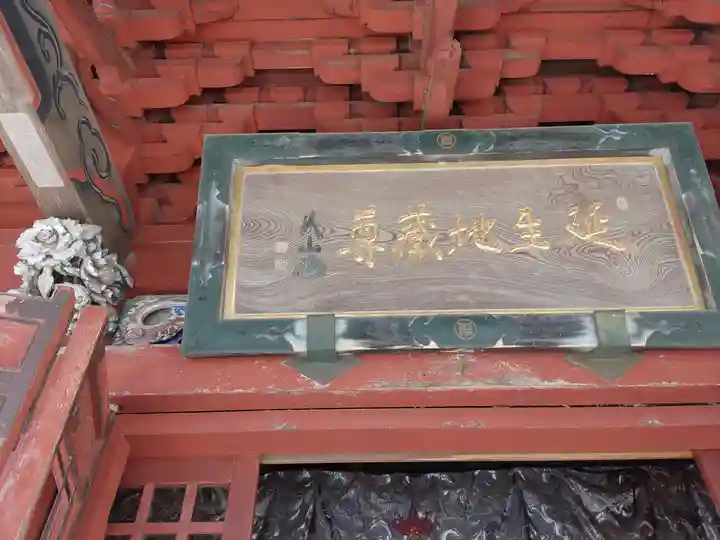 延生地蔵尊